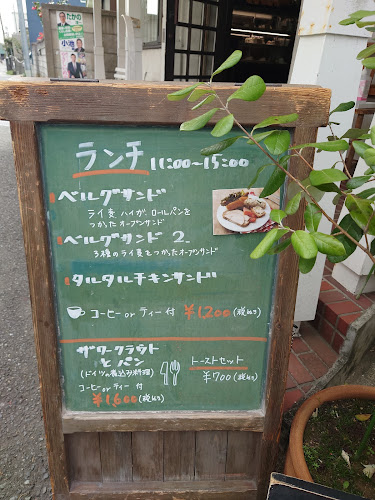 ランチ 11:00~15:00
ベルグサンド
ライ麦 ハイガ、ロールパンを
つかった オープンサンド
ベルグサンド 2.
3種のライ麦をつかったオープンサンド
タルタルチキンサンド
コーヒー or ティー 付 ¥1200(税込み)
ザワークラウト
と パン
(ドイツの煮込み料理)
コーヒー or ティー 付
¥1,600(税込み)
トーストセット
¥700(税込み)